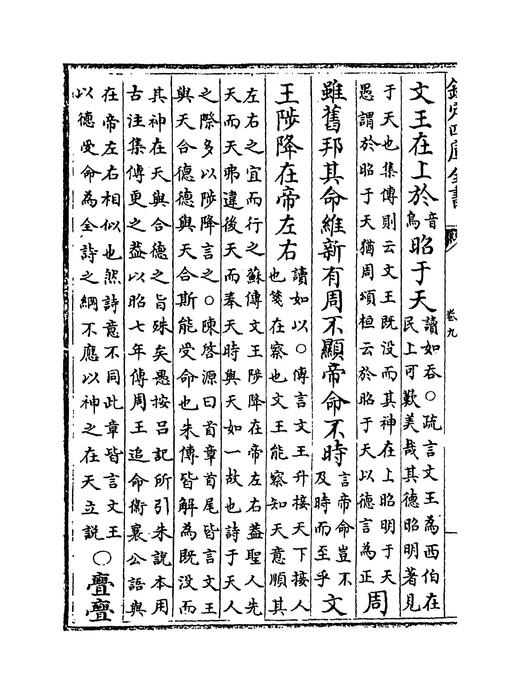 欽定四庫全書
卷九
文王在上於音烏昭于天讀如吞○疏言文王為西伯在
民上可歎美哉其德昭明著見
于天也集傳則云文王既没而其神在上昭明于天
愚謂於昭于天猶周頌桓云於昭于天以德言為正周
雖舊邦其命維新有周不顯帝命不時言帝命豈不
及時而至乎文
王陟降在帝左右讀如以○傳言文王升接天下接人
也箋在察也文王能察知天意順其
左右之宜而行之蘇傳文王陟降在帝左右葢聖人先
天而天弗違後天而奉天時與天如一故也詩于天人
之際多以陟降言之○陳啓源曰首章首尾皆言文王
與天合德德與天合斯能受命也朱傳皆解為既没而
其神在天與合德之旨殊矣愚按吕記所引朱說本用
古注集傳更之葢以昭七年傳周王追命衛襄公語與
在帝左右相似也然詩意不同此章皆言文王
以德受命為全詩之綱不應以神之在天立說○亹亹